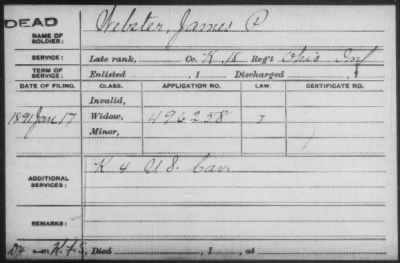 DEAD
NAME OF SOLDIER: Webster, James P
SERVICE: Late rank, Co. K, 18 Reg't Ohio Inf
TERM OF SERVICE: Enlisted , 1 Discharged , 1
DATE OF FILING. CLASS. APPLICATION NO. LAW. CERTIFICATE NO.
Invalid,
1891 Jan 17 Widow, 496258
Minor,
ADDITIONAL SERVICES: K 4 U.S. Cav
REMARKS:
Died , 1 , at